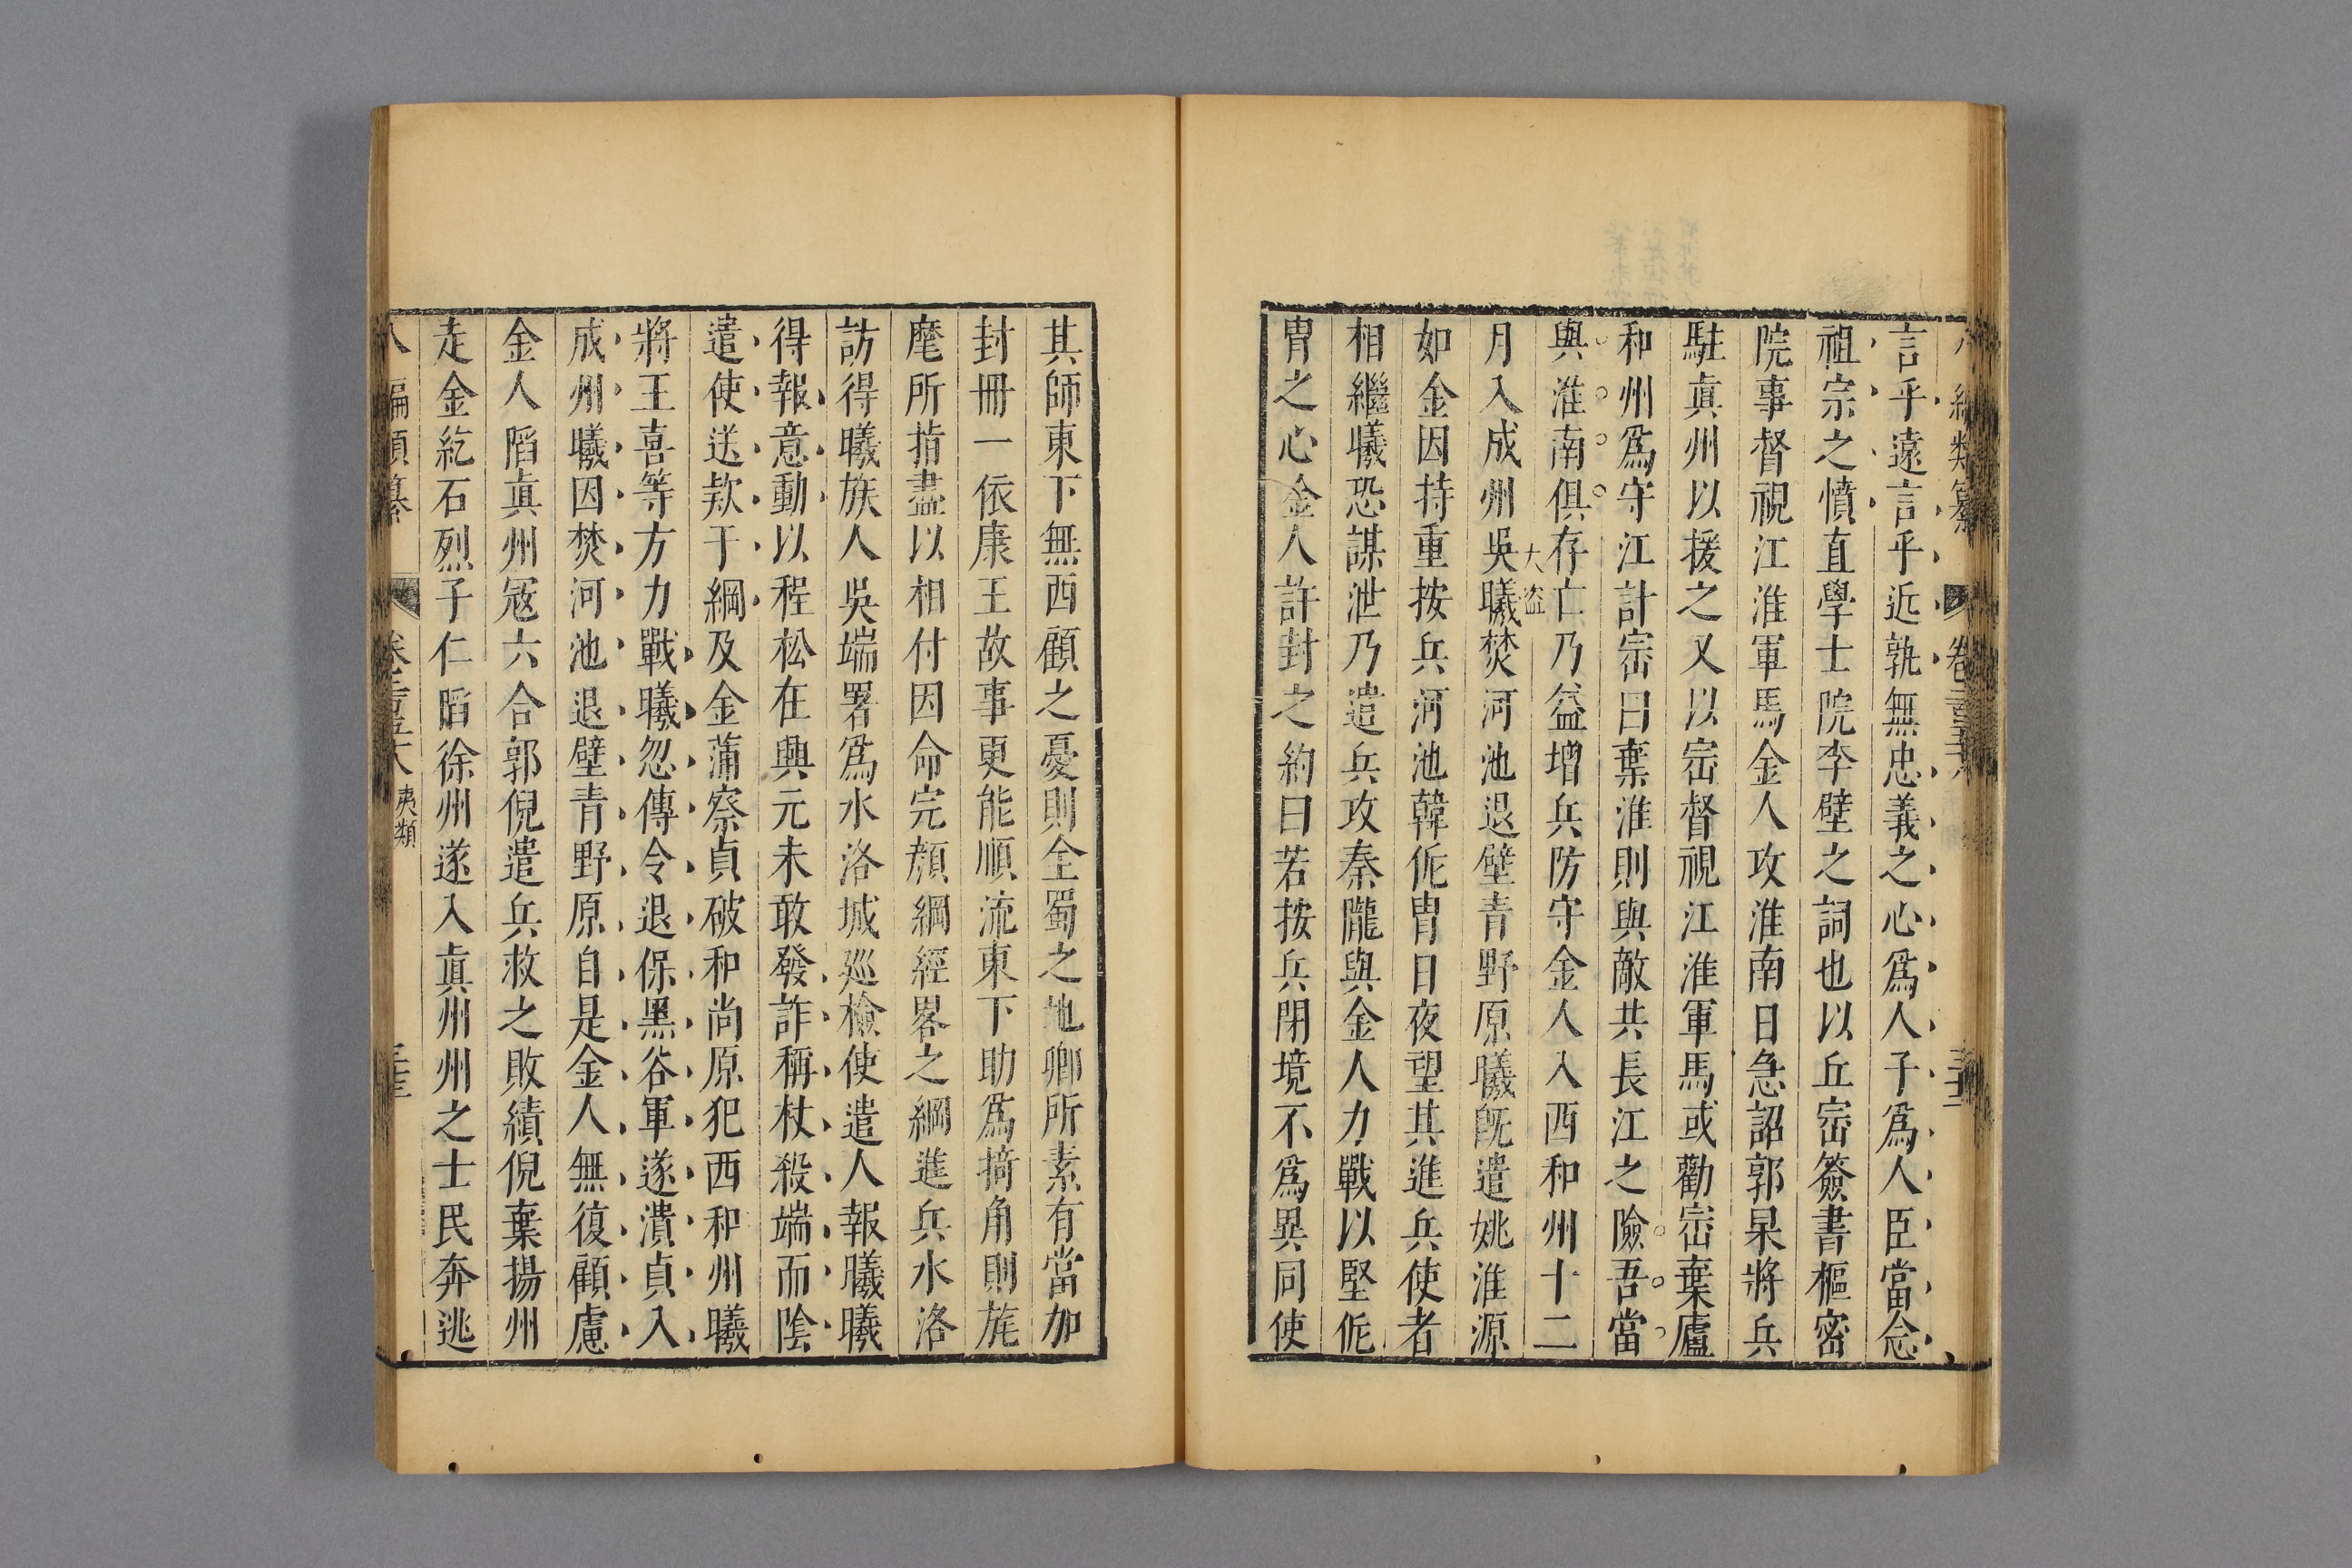 言乎遠言乎近孰無忠義之心爲人子爲人臣當念
祖宗之憤直學士院李壁之詞也以丘崈簽書樞密
院事督視江淮軍馬金人攻淮南日急詔郭杲將兵
駐眞州以援之又以崈督視江淮軍馬或勸崈棄廬
和州爲守江計崈曰棄淮則與敵共長江之險吾當
與淮南俱存亡乃益增兵防守金人入西和州十二
大盜
月入成州吳曦焚河池退壁青野原曦旣遣姚淮源
如金因持重按兵河池韓侂胄日夜望其進兵使者
相繼曦恐謀泄乃遣兵攻秦隴與金人力戰以堅侂
胄之心金人許封之約曰若按兵閉境不爲異同使
其師東下無西顧之憂則全蜀之地卿所素有當加
封冊一依康王故事更能順流東下助爲掎角則旄
麾所指盡以相付因命完顏綱經畧之綱進兵水洛
訪得曦族人吳端署爲水洛城廵檢使遣人報曦曦
得報意動以程松在興元未敢發詐稱杖殺端而陰
遣使送欵于綱及金蒲察貞破和尚原犯西和州曦
將王喜等方力戰曦忽傳令退保黑谷軍遂潰貞入
成州曦因焚河池退壁青野原自是金人無復顧慮
金人陷眞州寇六合郭倪遣兵救之敗績倪棄揚州
走金紇石烈子仁陷徐州遂入眞州州之士民奔逃
八編類纂 夷類